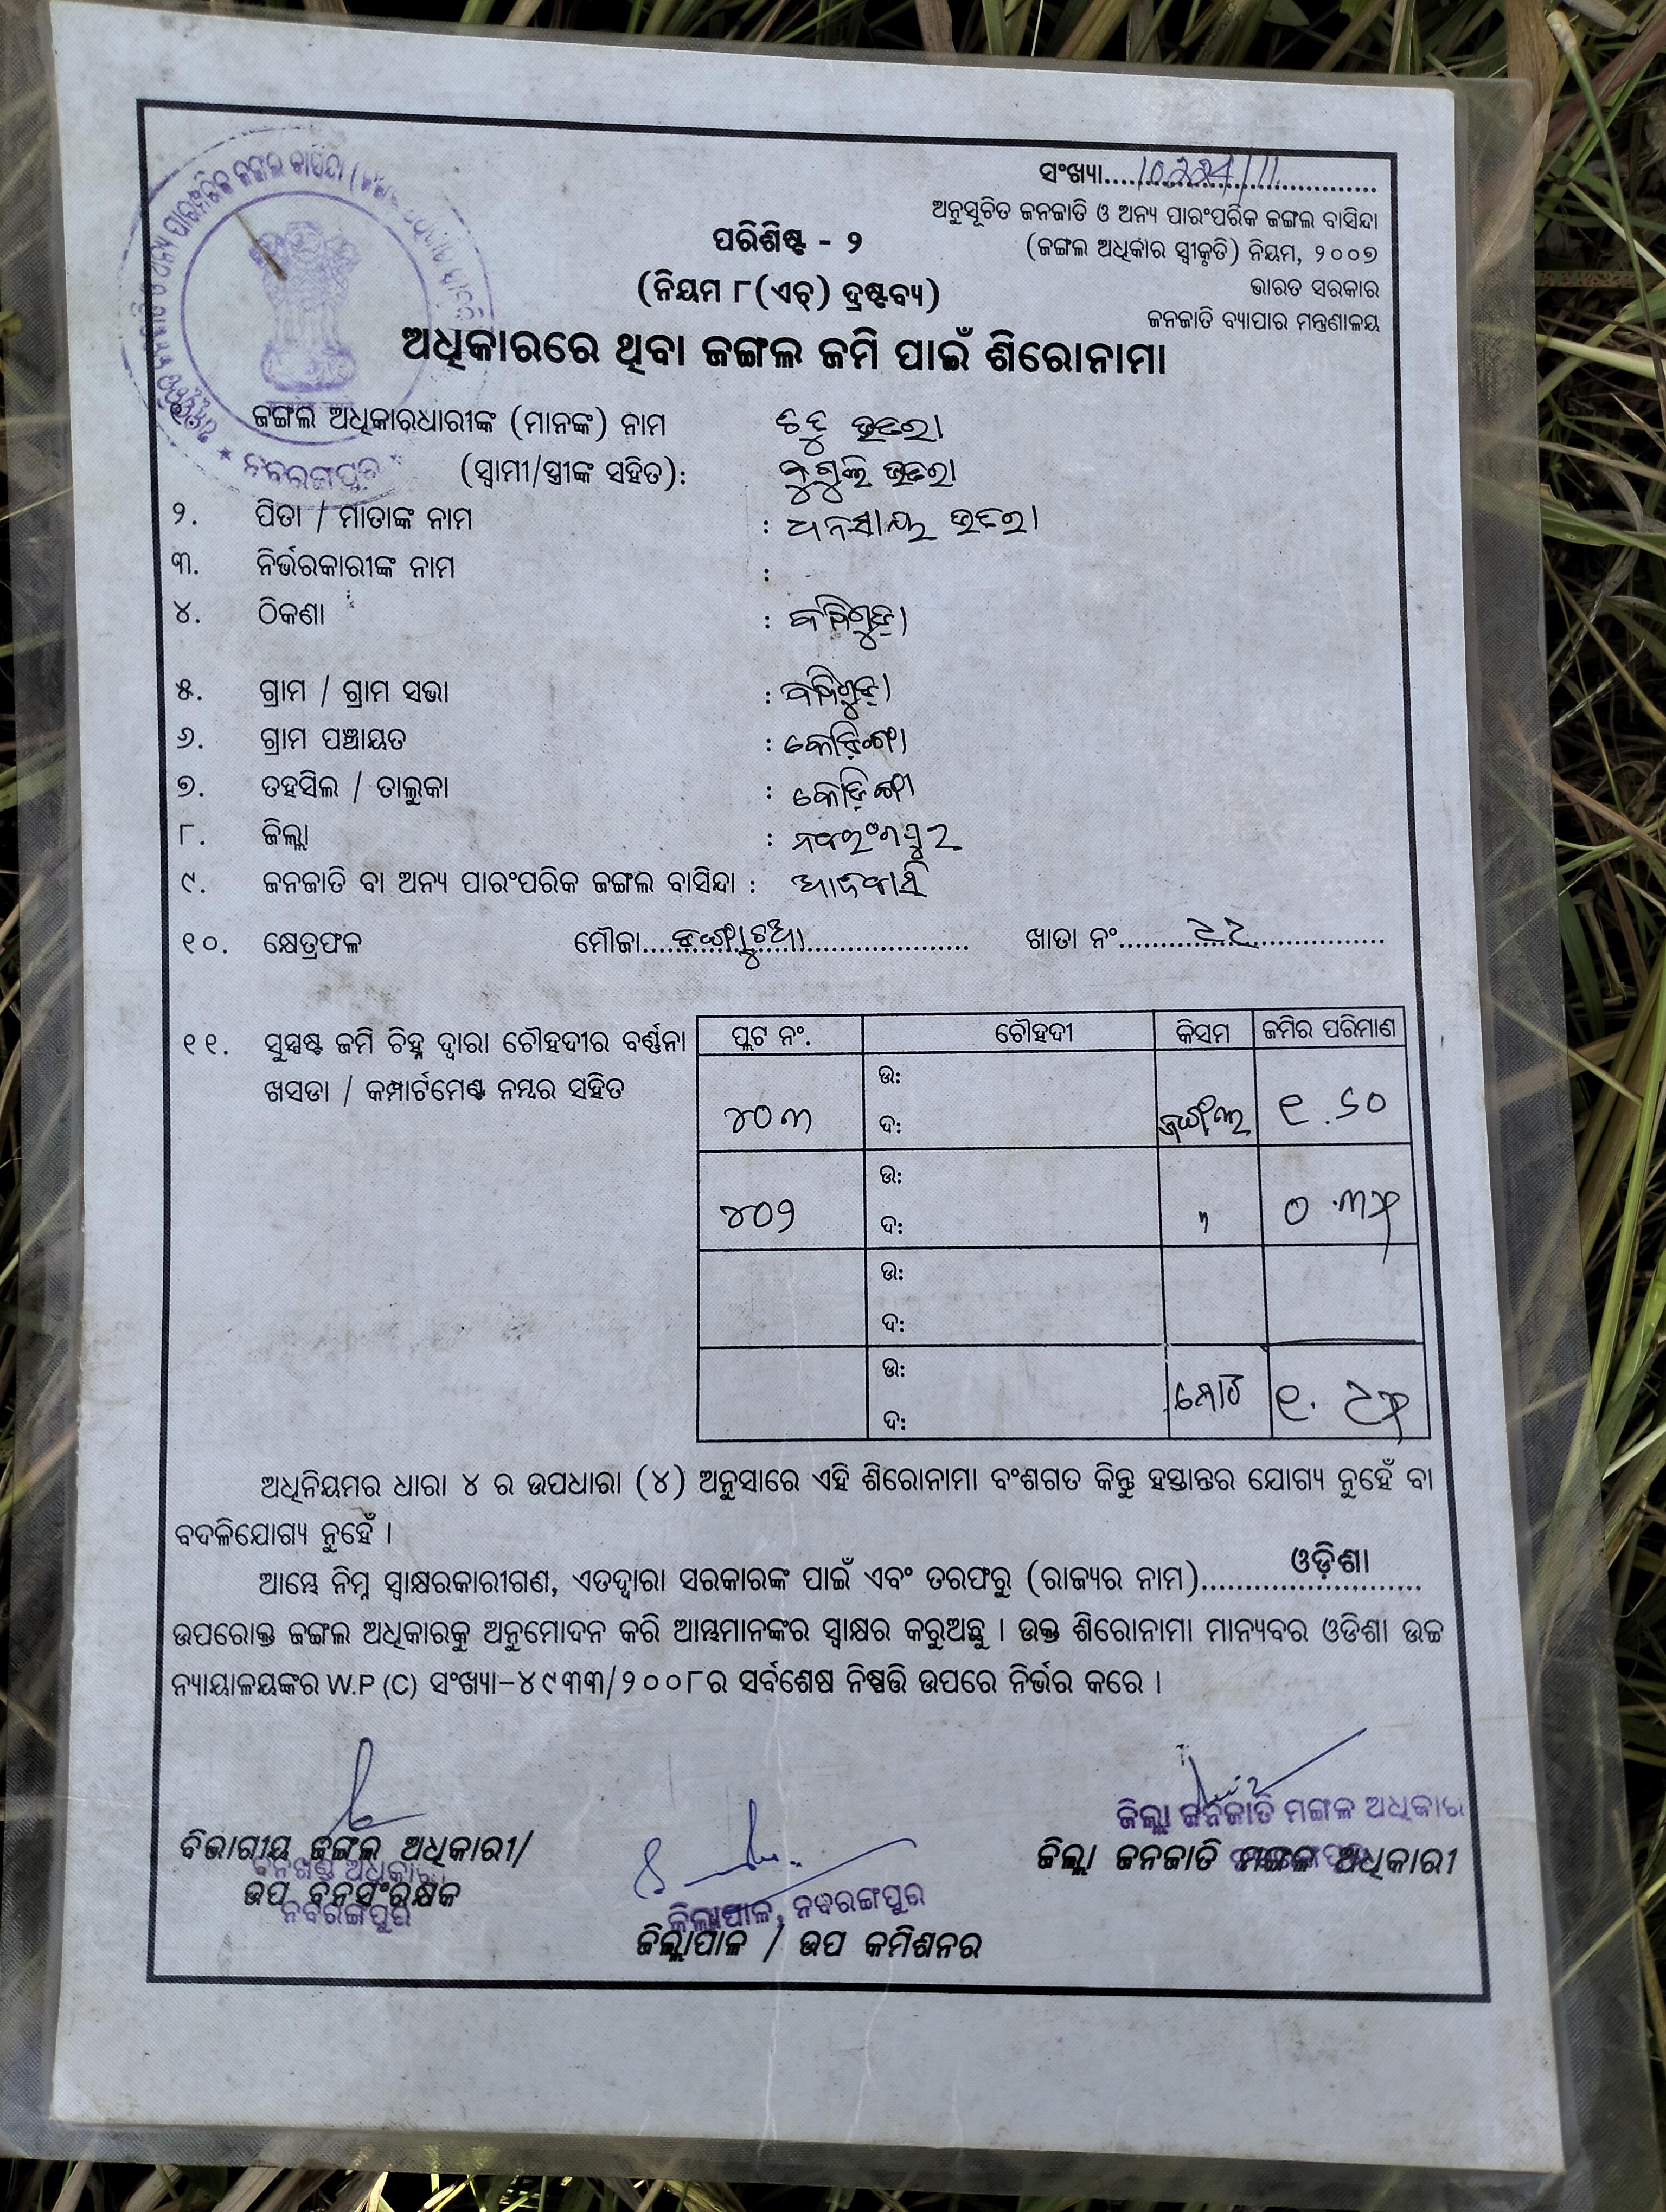 ସଂଖ୍ୟା....10224/11
ଅନୁସୂଚିତ ଜନଜାତି ଓ ଅନ୍ୟ ପାରଂପରିକ ଜଙ୍ଗଲ ବାସିନ୍ଦା
(ଜଙ୍ଗଲ ଅଧିକାର ସ୍ୱୀକୃତି) ନିୟମ, ୨୦୦୭
ଭାରତ ସରକାର
ଜନଜାତି ବ୍ୟାପାର ମନ୍ତ୍ରଣାଳୟ
ପରିଶିଷ୍ଟ - ୨
(ନିୟମ ୮(ଏଚ୍) ଦ୍ରଷ୍ଟବ୍ୟ)
ଅଧିକାରରେ ଥିବା ଜଙ୍ଗଲ ଜମି ପାଇଁ ଶିରୋନାମା
ନବରଙ୍ଗପୁର
ଜଙ୍ଗଲ ଅଧିକାରଧାରୀଙ୍କ (ମାନଙ୍କ) ନାମ ଭତରା
(ସ୍ୱାମୀ/ସ୍ତ୍ରୀଙ୍କ ସହିତ): ଭତରା
୨. ପିତା / ମାତାଙ୍କ ନାମ : ଧନସାୟ ଭତରା
୩. ନିର୍ଭରକାରୀଙ୍କ ନାମ :
୪. ଠିକଣା :
୫. ଗ୍ରାମ / ଗ୍ରାମ ସଭା :
୬. ଗ୍ରାମ ପଞ୍ଚାୟତ : କୋଡ଼ିଙ୍ଗା
୭. ତହସିଲ / ତାଲୁକା : କୋଡ଼ିଙ୍ଗା
୮. ଜିଲ୍ଲା : ନବରଂଗପୁର
୯. ଜନଜାତି ବା ଅନ୍ୟ ପାରଂପରିକ ଜଙ୍ଗଲ ବାସିନ୍ଦା : ଆଦିବାସି
୧୦. କ୍ଷେତ୍ରଫଳ ମୌଜା.... ଖାତା ନଂ.... ୬୨
୧୧. ସୁସ୍ପଷ୍ଟ ଜମି ଚିହ୍ନ ଦ୍ୱାରା ଚୌହଦୀର ବର୍ଣ୍ଣନା
ଖସଡା / କମ୍ପାର୍ଟମେଣ୍ଟ ନମ୍ବର ସହିତ
ପ୍ଲଟ ନଂ. ଚୌହଦୀ କିସମ ଜମିର ପରିମାଣ
ଉ:
୪୦୩ ଦ: ଜଙ୍ଗଲ ୧.୫୦
ଉ:
୪୦୨ ଦ: " ୦.୩୫
ଉ:
ଦ:
ଉ:
ଦ: ମୋଟ ୧.୮୫
ଅଧିନିୟମର ଧାରା ୪ ର ଉପଧାରା (୪) ଅନୁସାରେ ଏହି ଶିରୋନାମା ବଂଶଗତ କିନ୍ତୁ ହସ୍ତାନ୍ତର ଯୋଗ୍ୟ ନୁହେଁ ବା
ବଦଳିଯୋଗ୍ୟ ନୁହେଁ ।
ଆମ୍ଭେ ନିମ୍ନ ସ୍ୱାକ୍ଷରକାରୀଗଣ, ଏତଦ୍ୱାରା ସରକାରଙ୍କ ପାଇଁ ଏବଂ ତରଫରୁ (ରାଜ୍ୟର ନାମ)....ଓଡ଼ିଶା....
ଉପରୋକ୍ତ ଜଙ୍ଗଲ ଅଧିକାରକୁ ଅନୁମୋଦନ କରି ଆମ୍ଭମାନଙ୍କର ସ୍ୱାକ୍ଷର କରୁଅଛୁ । ଉକ୍ତ ଶିରୋନାମା ମାନ୍ୟବର ଓଡିଶା ଉଚ୍ଚ
ନ୍ୟାୟାଳୟଙ୍କର W.P (C) ସଂଖ୍ୟା-୪୯୩୩/୨୦୦୮ର ସର୍ବଶେଷ ନିଷ୍ପତ୍ତି ଉପରେ ନିର୍ଭର କରେ ।
ଜିଲ୍ଲା ଜନଜାତି ମଙ୍ଗଳ ଅଧିକାରୀ
ବିଭାଗୀୟ ଜଙ୍ଗଲ ଅଧିକାରୀ/
ଜିଲ୍ଲା ଜନଜାତି ମଙ୍ଗଳ ଅଧିକାରୀ
ବନଖଣ୍ଡ ଅଧିକାରୀ
ଉପ ବନସଂରକ୍ଷକ
ନବରଙ୍ଗପୁର
ଜିଲ୍ଲାପାଳ, ନବରଙ୍ଗପୁର
ଜିଲ୍ଲାପାଳ / ଉପ କମିଶନର